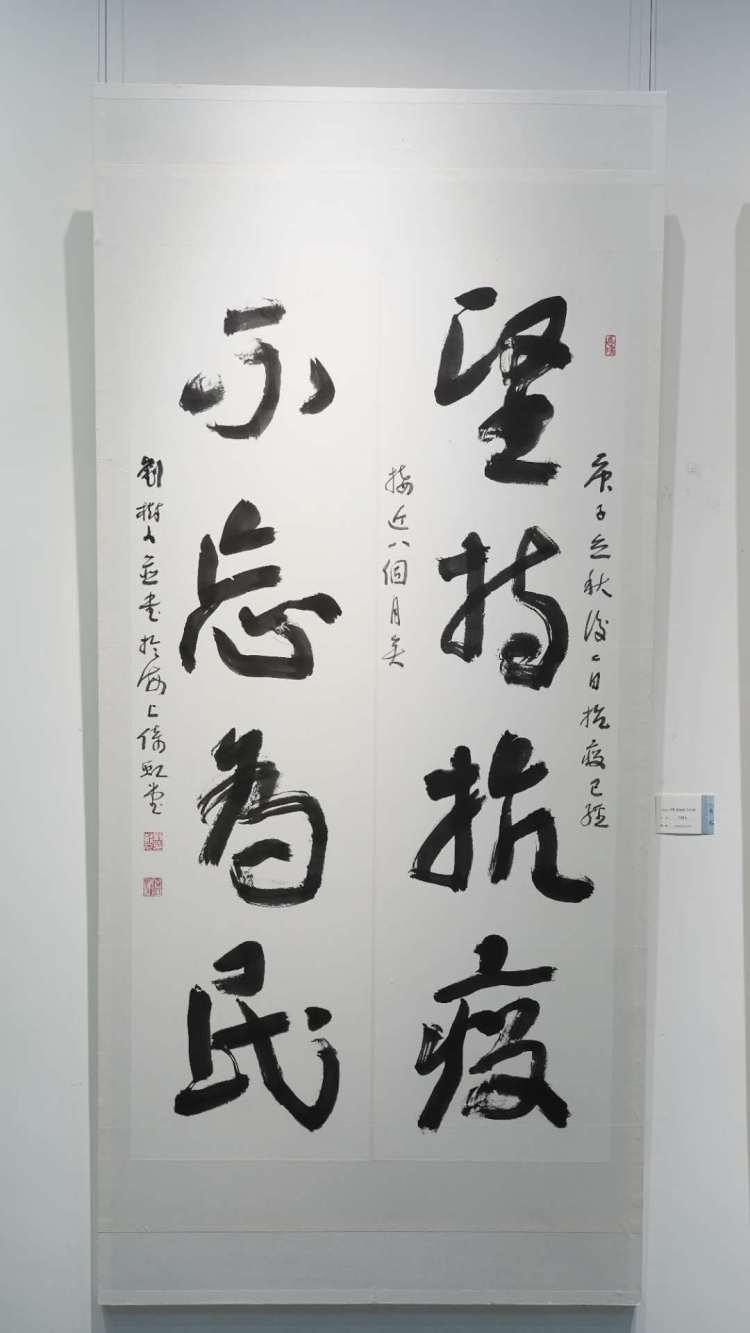 庚子立秋後二日抗疫已經
坚持抗疫
接近八個月矣
不忘為民
劉樹人並書於海上倚虹堂